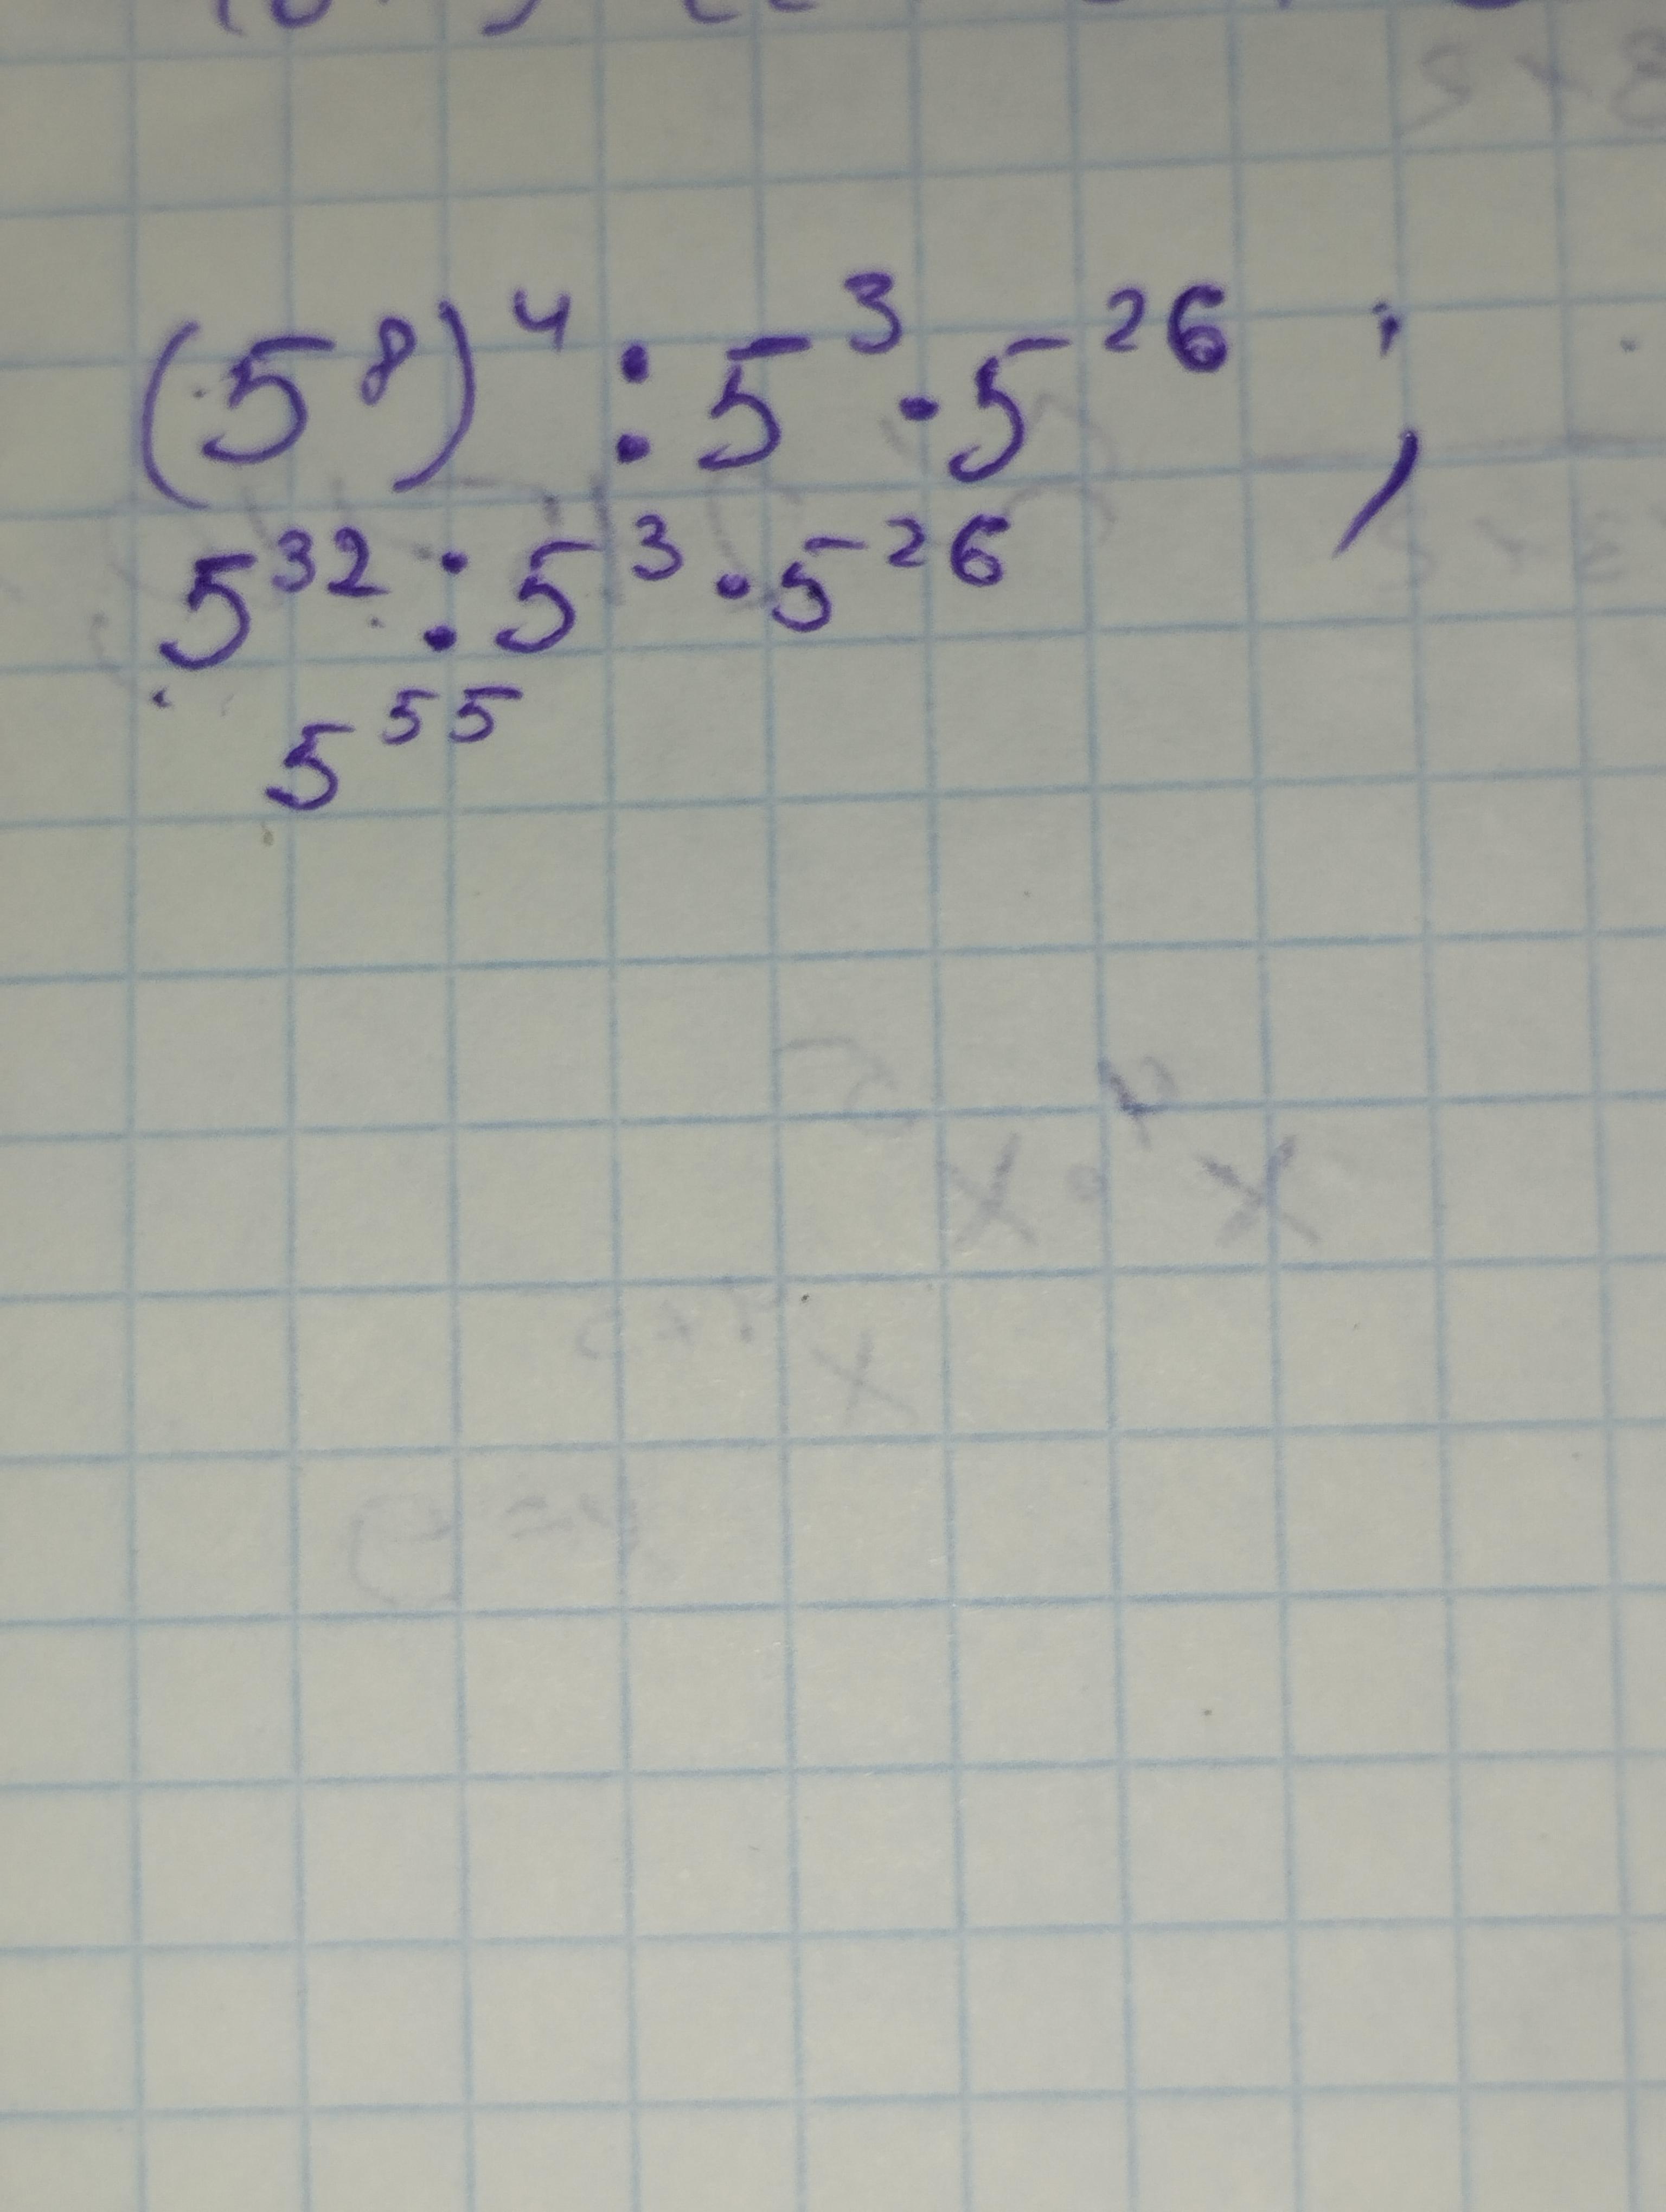 (5⁸)⁴ : 5³ · 5²⁶ ;
5³² : 5³ · 5²⁶
5⁵⁵